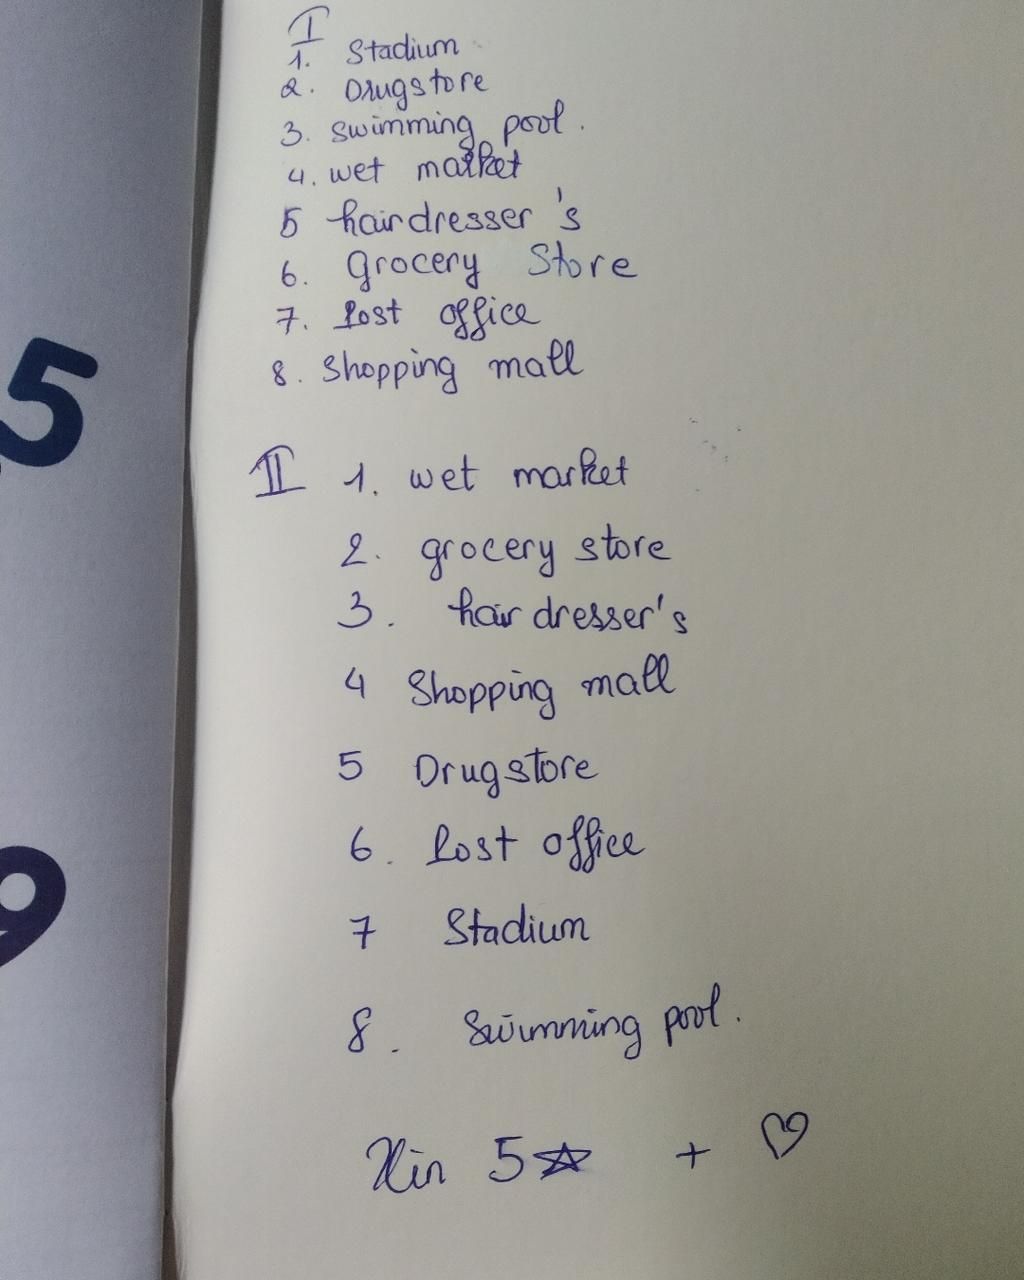 I
1. Stadium
2. Drugstore
3. swimming pool.
4. wet market
5 hairdresser's
6. grocery Store
7. Post office
8. shopping mall
II 1. wet market
2. grocery store
3. hairdresser's
4 Shopping mall
5 Drugstore
6. Post office
7 Stadium
8. Swimming pool.
Xin 5☆ + ♡
5
9